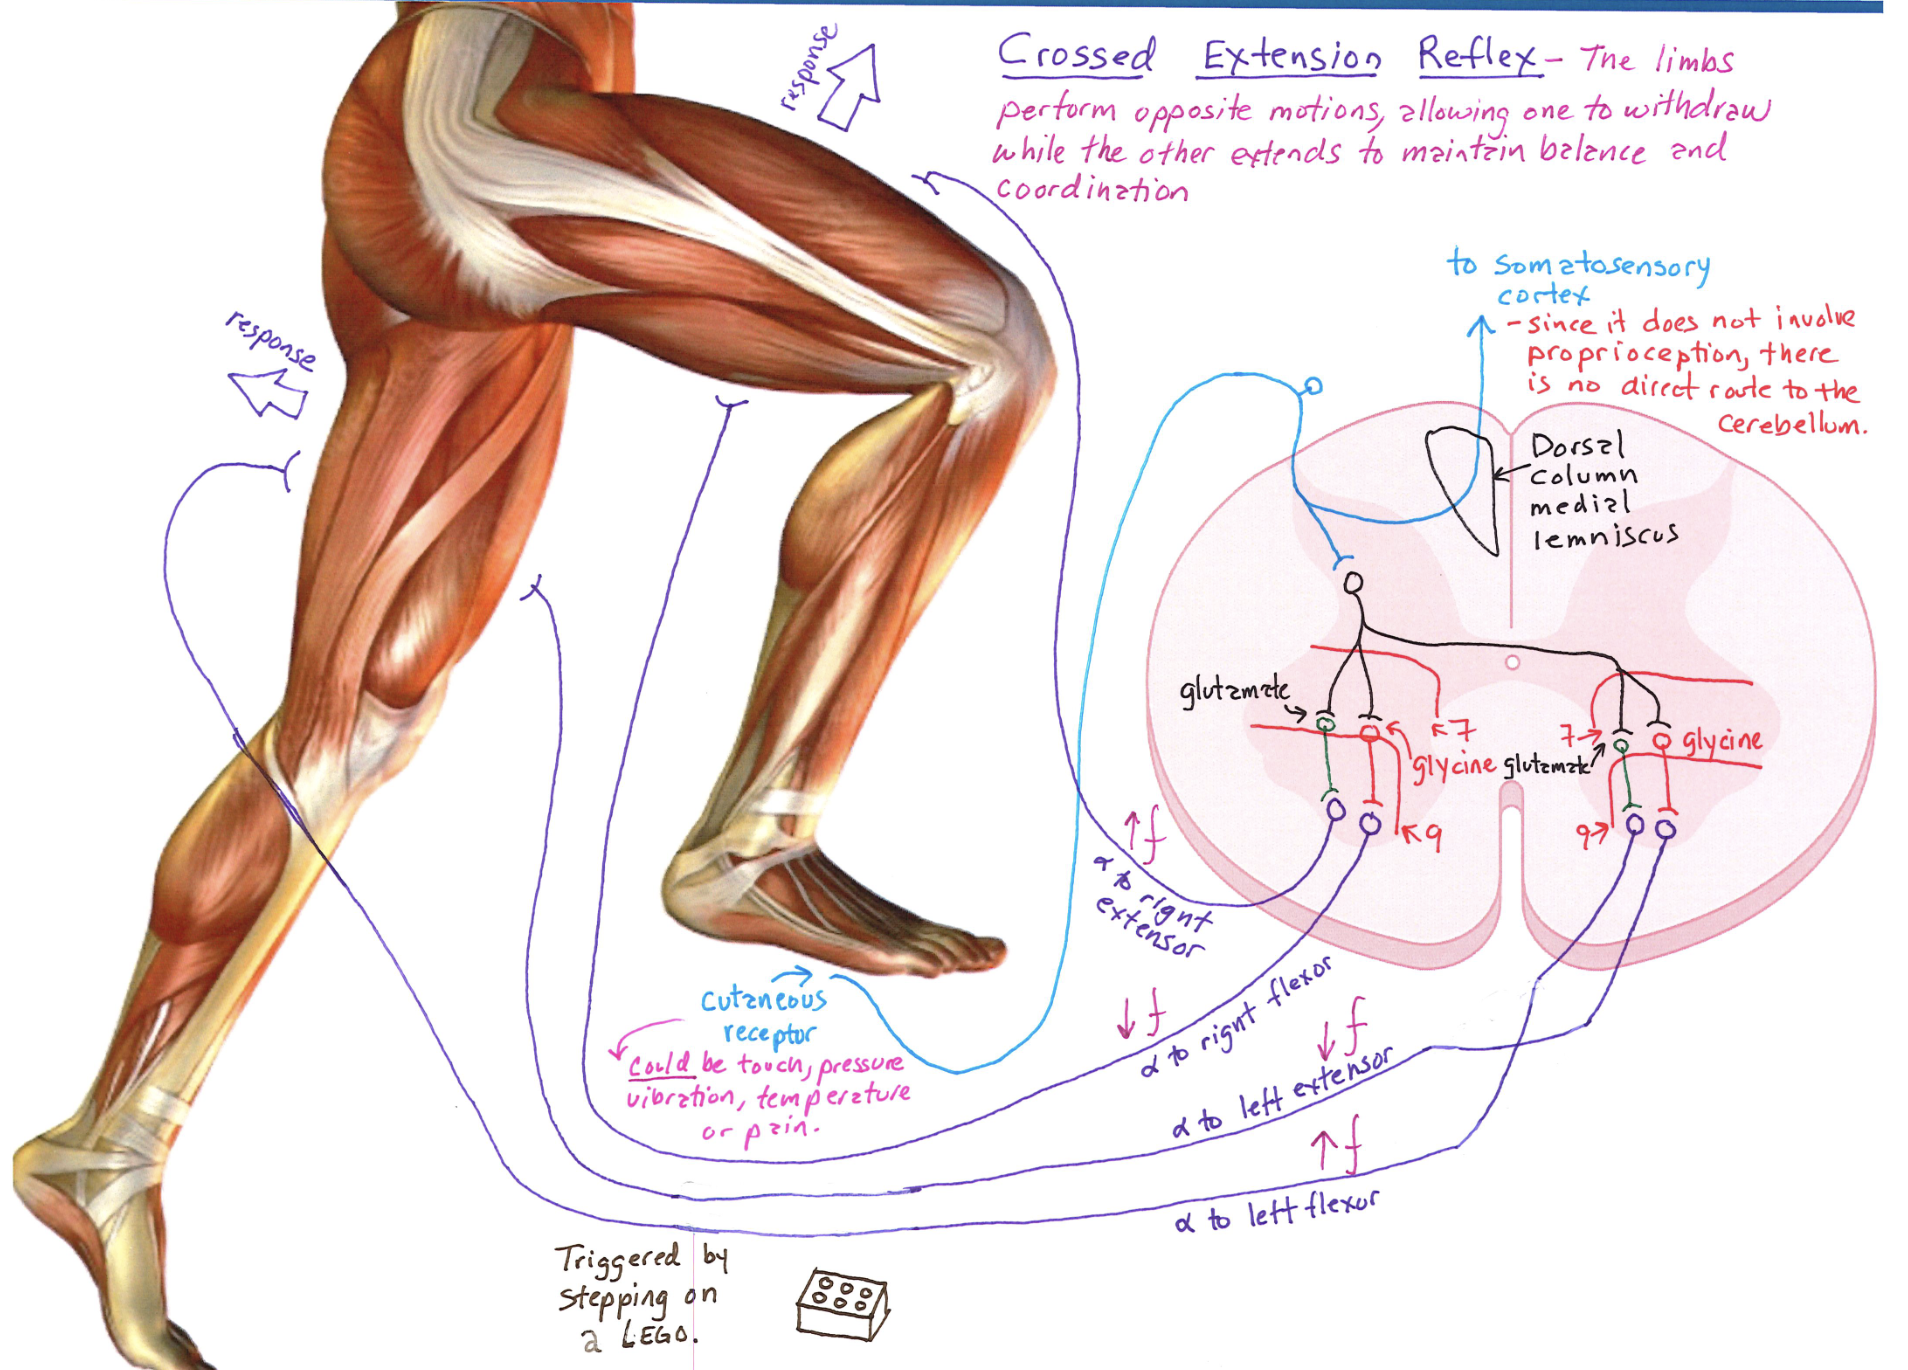 Crossed Extension Reflex - The limbs
perform opposite motions, allowing one to withdraw
while the other extends to maintain balance and
coordination
response
response
to somatosensory
cortex
- since it does not involve
proprioception, there
is no direct route to the
cerebellum.
Dorsal
column
medial
lemniscus
glutamate
7
glycine
9
7
glutamate
glycine
9
↑ f
α to right
extensor
↓ f
α to right flexor
↓ f
α to left extensor
↑ f
α to left flexor
cutaneous
receptor
could be touch, pressure
vibration, temperature
or pain.
Triggered by
stepping on
a LEGO.